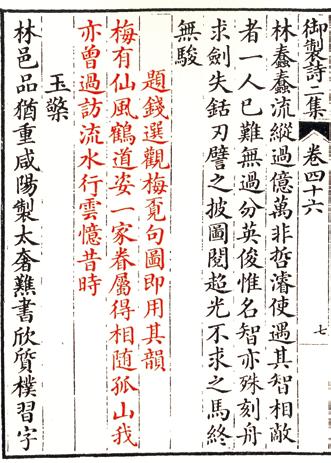 御製詩二集 卷四十六 七
林蠢蠢流縱過億萬非哲濬使遇其智相敵
者一人已難無過分英俊惟名智亦殊刻舟
求劍失銛刃譬之披圖閱超光不求之馬終
無駿
題錢選觀梅覔句圖即用其韻
梅有仙風鶴道姿一家眷屬得相隨孤山我
亦曾過訪流水行雲憶昔時
玉檠
林邑品猶重咸陽製太奢 書欣質樸習字